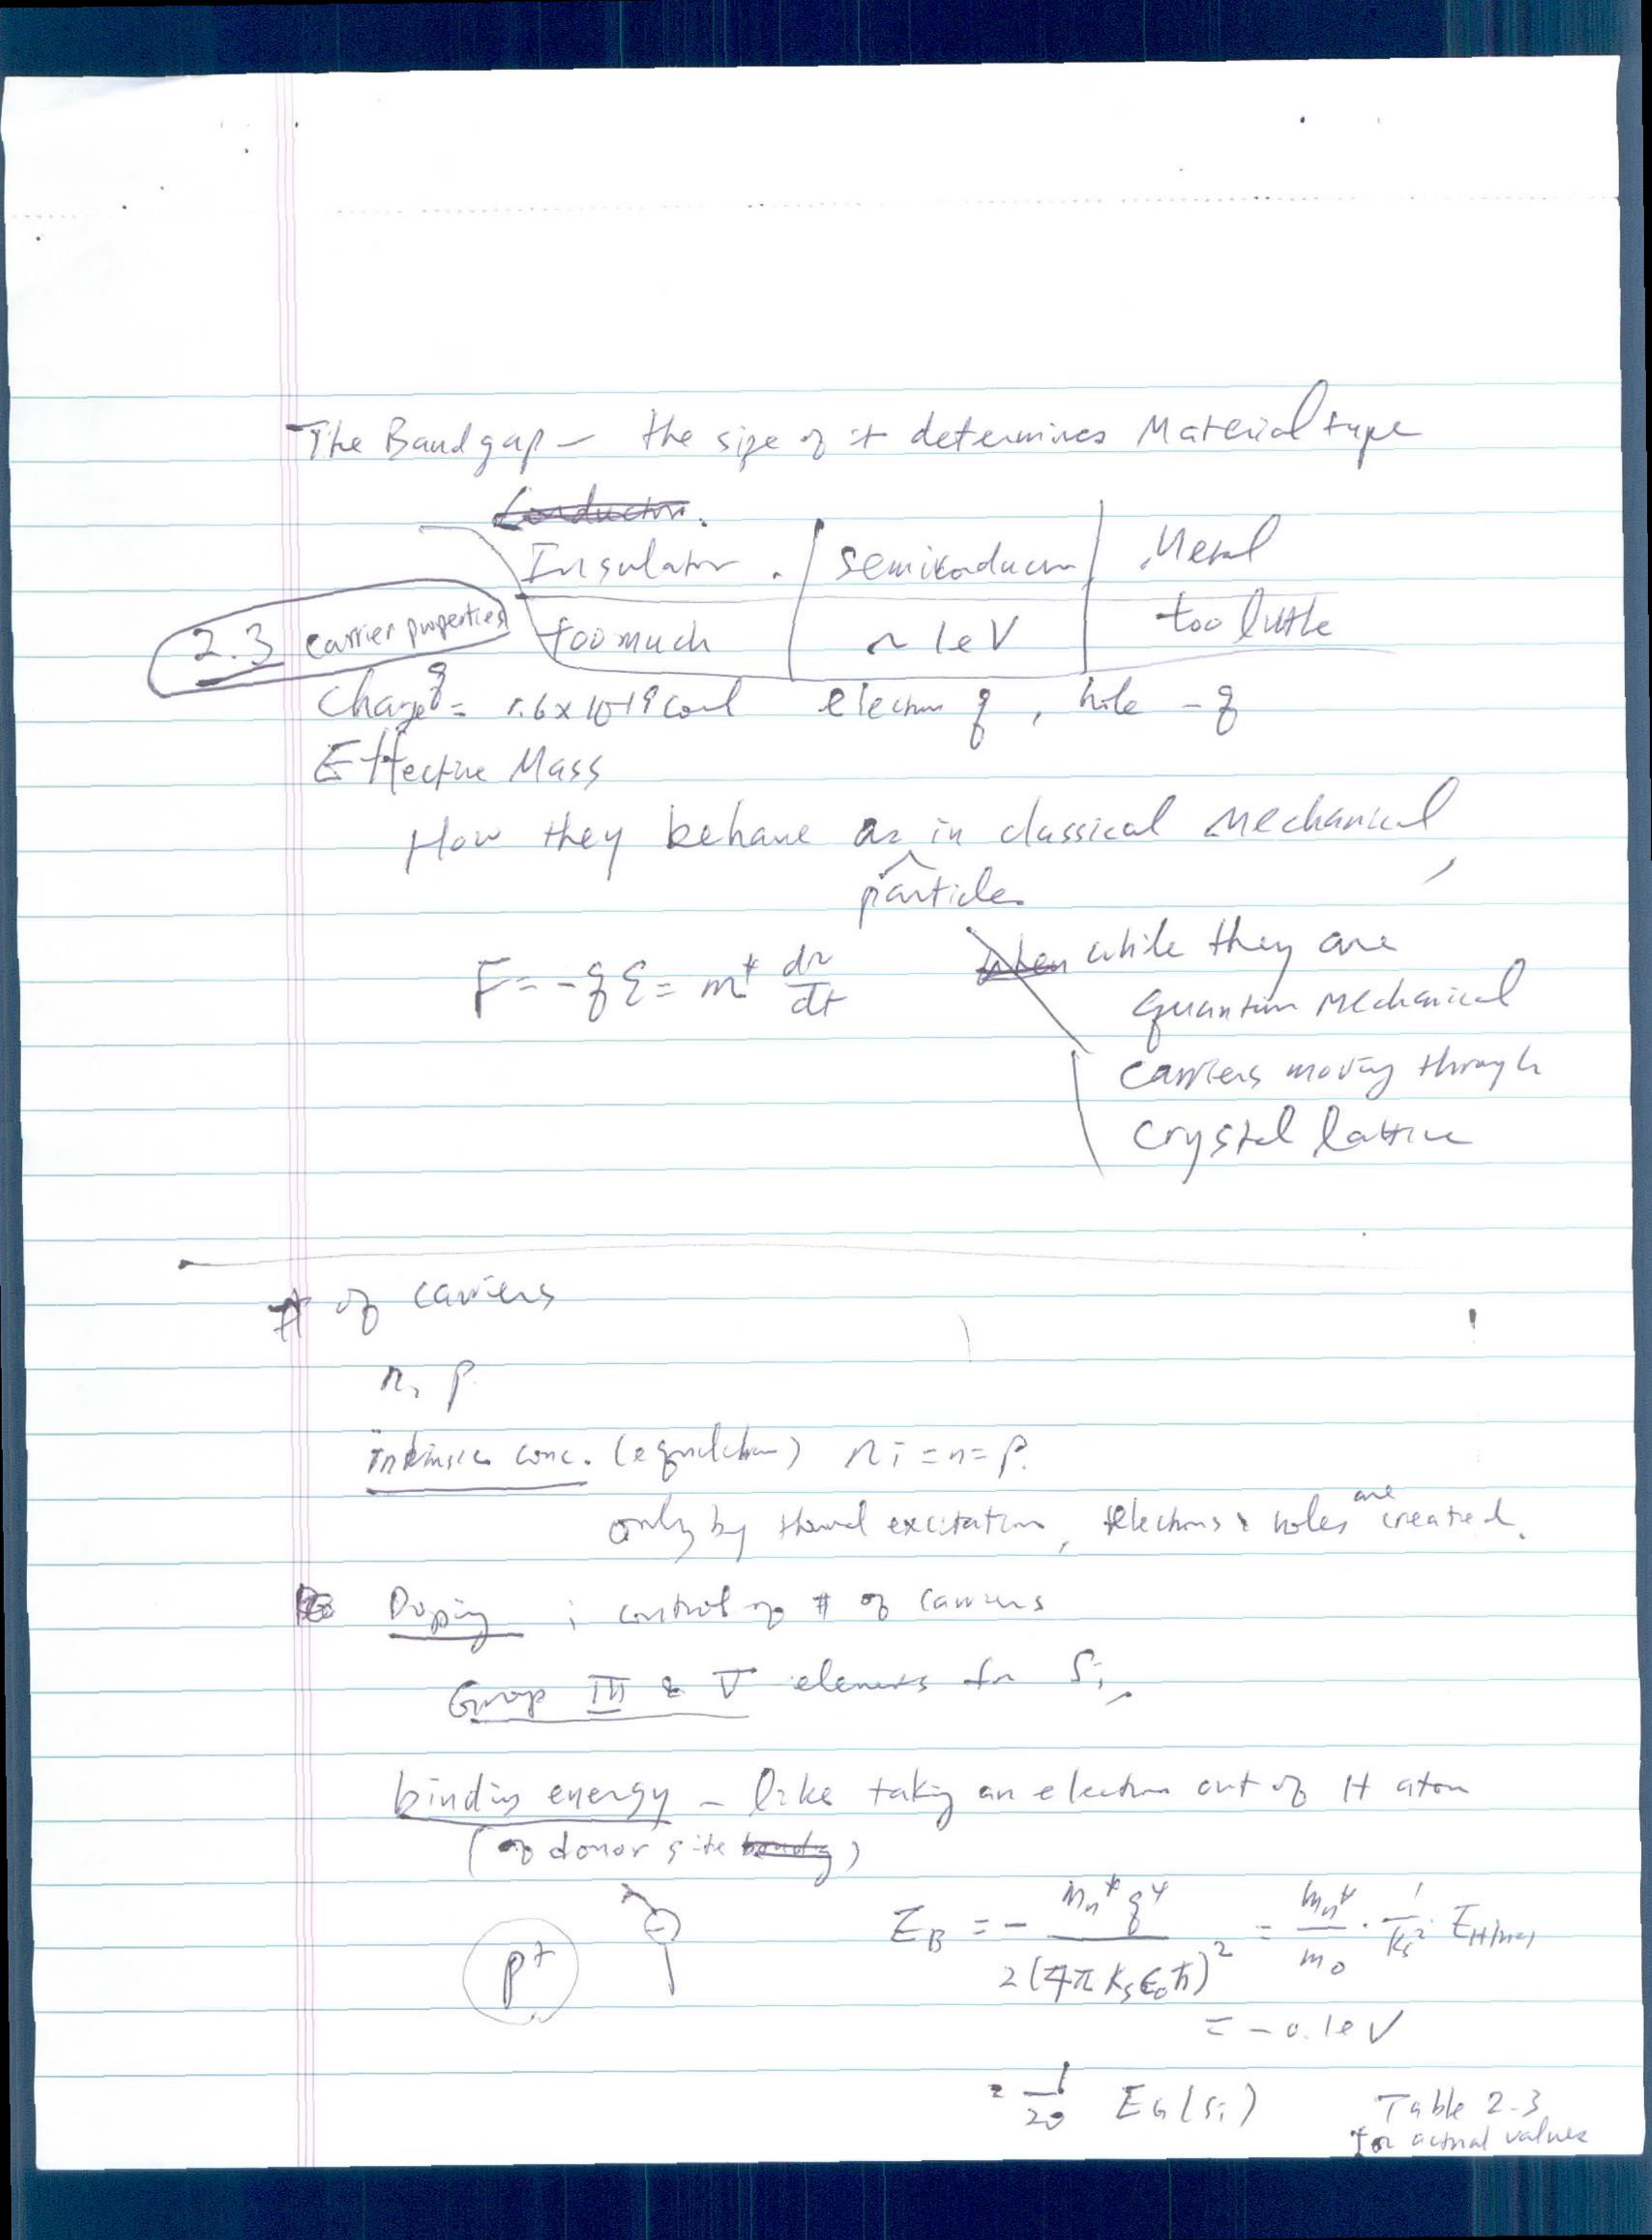 The Bandgap – the size of it determines Material type
Conductor.
Insulator . | semiconductor | Metal
too much | ~ 1eV | too little
2.3 carrier properties
Charge q = 1.6 x 10-19 coul electron q , hole - q
Effective Mass
How they behave as in classical mechanical
particles
F = - q ℰ = m* dv/dt
when while they are
quantum mechanical
carriers moving through
crystal lattice
# of carriers
n, p
intrinsic conc. (equilibrium) ni = n = p.
only by thermal excitation, electrons & holes are created.
Doping ; control of # of carriers
Group III & V elements for Si
binding energy – like taking an electron out of H atom
(of donor site )
p+ −
E_B = - m_n* q^4 / 2(4π K_s ϵ_0 ħ)^2 = m_n*/m_0 · 1/K_s^2 E_H|n=1
= - 0.1eV
= 1/20 E_G (Si)
Table 2.3
for actual values